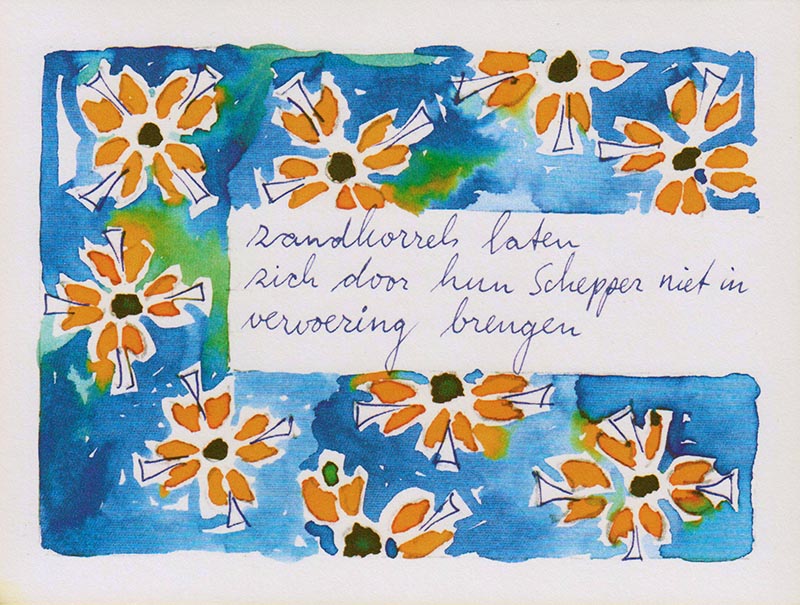 zandkorrels laten
zich door hun Schepper niet in
vervoering brengen